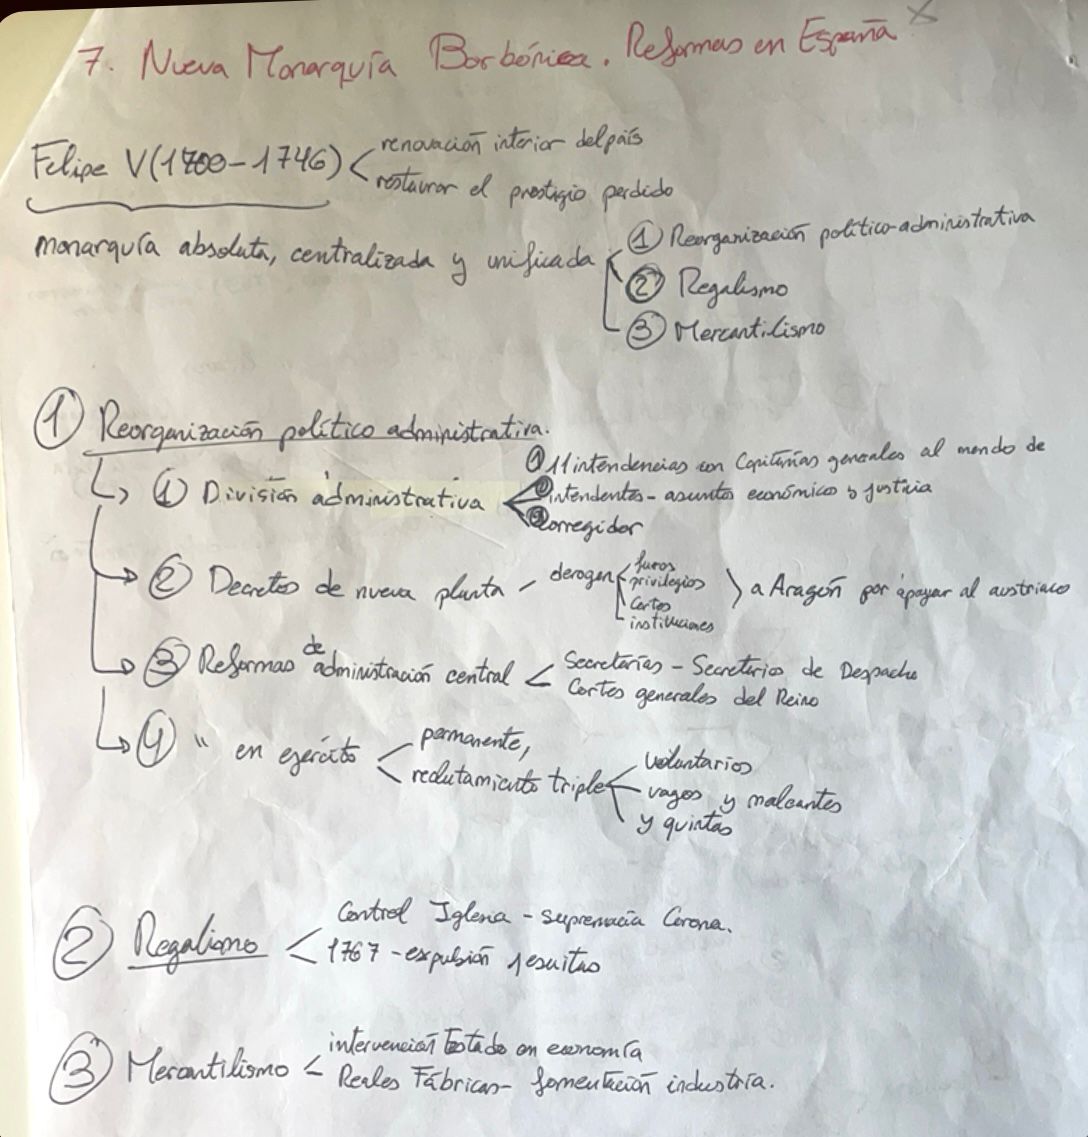 7. Nueva Monarquía Borbónica. Reformas en España
Felipe V (1700-1746) < renovación interior del país
restaurar el prestigio perdido
monarquía absoluta, centralizada y unificada
① Reorganización político-administrativa
② Regalismo
③ Mercantilismo
① Reorganización político administrativa.
↳ ① División administrativa
① 11 intendencias con Capitanías generales al mando de
② intendentes - asuntos económico y justicia
③ corregidor
→ ② Decretos de nueva planta - derogan
fueros
privilegios
Cortes
instituciones
} a Aragón por apoyar al austriaco
→ ③ Reformas de administración central <
Secretarías - Secretarios de Despacho
Cortes generales del Reino
↳ ④ " en ejército <
permanente,
reclutamiento triple
voluntarios
vagos y maleantes
y quintas
② Regalismo <
Control Iglesia - supremacía Corona.
1767 - expulsión jesuitas
③ Mercantilismo <
intervención Estado en economía
Reales Fábricas - fomentación industria.